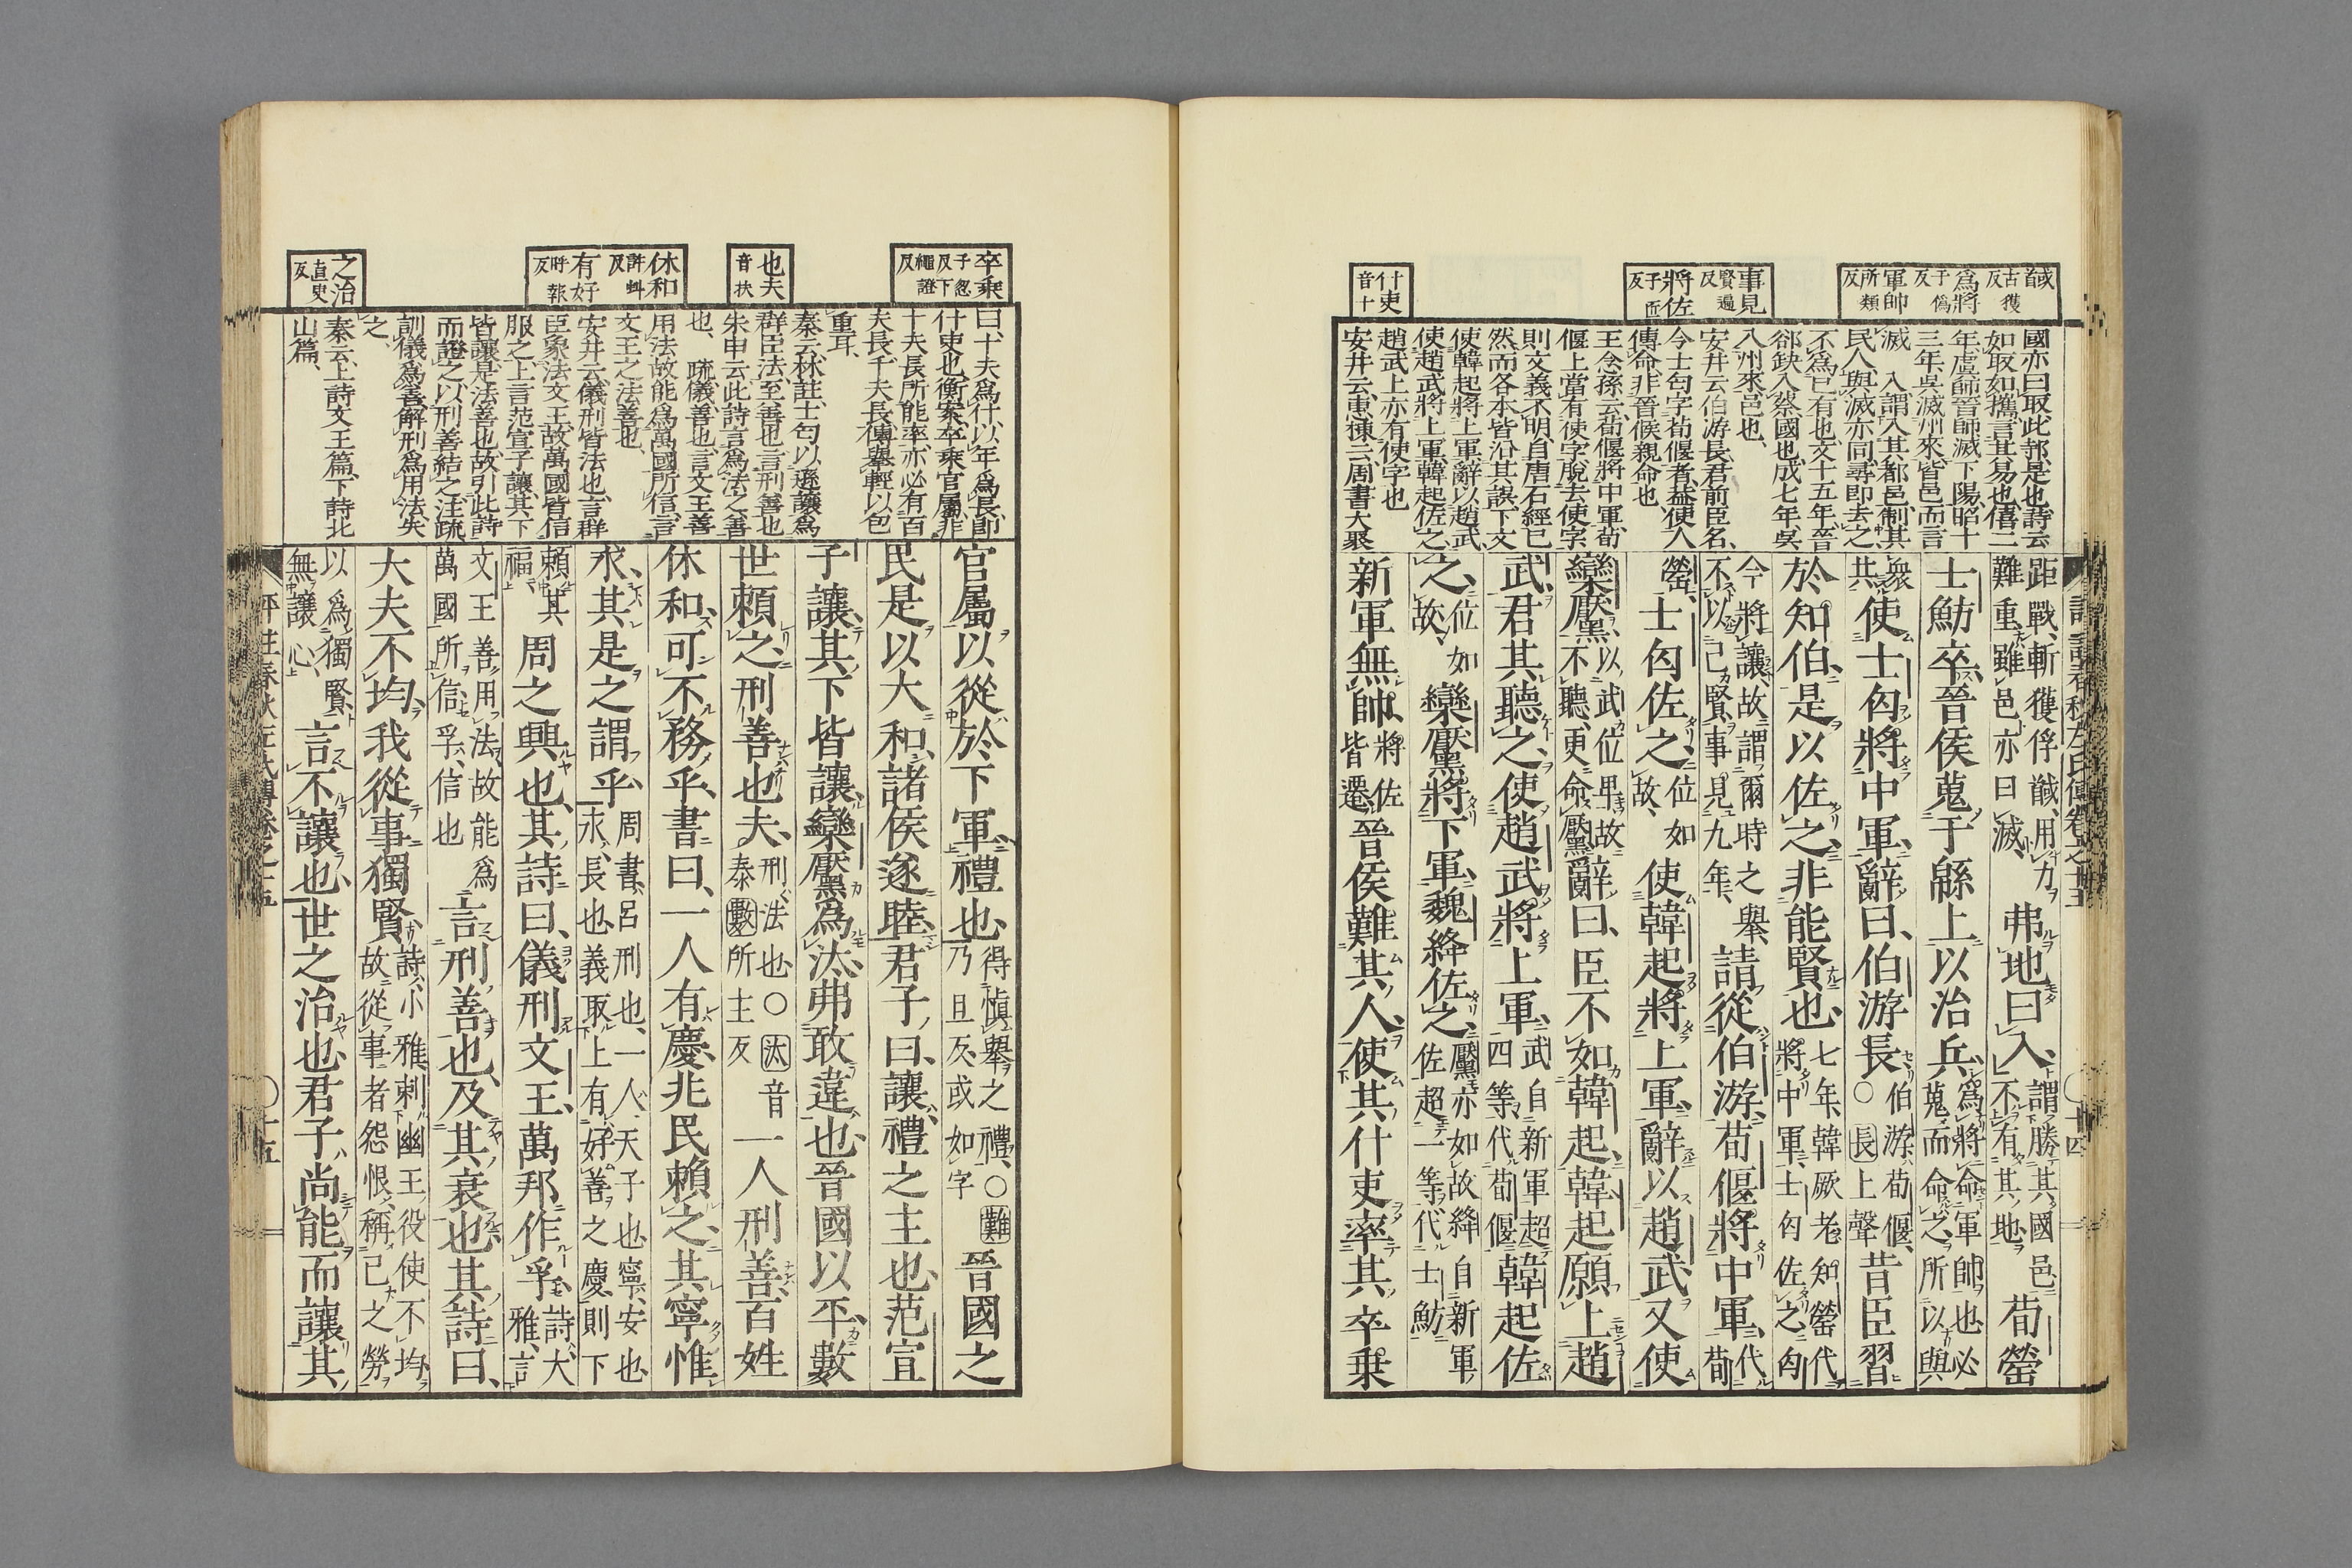 馘古獲反
爲將于僞反
軍帥所類反
事見賢遍反
將佐子匠反
什吏音十
國亦曰取此邿是也詩云
如取如攜言其易也僖二
年虞師晉師滅下陽昭十
三年吳滅州來皆邑而言
滅、入謂入其都邑制其
民人與滅亦同尋即去之
不爲已有也文十五年晉
郤缺入蔡國也成七年吳
入州來邑也、
安井云伯游長君前臣名、
今士匄字荀偃者蓋使人
傳命非晉侯親命也、
王念孫云荀偃將中軍荀
偃上當有使字脫去使字
則文義不明自唐石經已
然而各本皆沿其誤下文
使韓起將上軍辭以趙武、
使趙武將上軍韓起佐之、
趙武上亦有使字也
安井云惠棟云周書大聚
評註春秋左氏傳卷之十五
十四
距戰、斬獲俘馘、用力
難重、雖邑亦曰滅、弗地曰入、謂勝其國邑
不有其地、荀罃
士魴卒、晉侯蒐于緜上以治兵、爲將命軍帥也必
蒐而命之、所以與
衆
共使士匄將中軍、辭曰、伯游長伯游荀偃、
○長上聲昔臣習
於知伯、是以佐之、非能賢也、七年、韓厥老、知罃代
將中軍、士匄佐之、匄
今將讓、故謂爾時之舉、
不以己賢、事見九年、請從伯游、荀偃將中軍、代
荀
罃、士匄佐之、位如
故、使韓起將上軍、辭以趙武、又使
欒黶、以武位卑故
不聽、更命黶辭曰、臣不如韓起、韓起願上趙
武、君其聽之、使趙武將上軍、武自新軍超
四等、代荀偃韓起佐
之、位如
故、欒黶將下軍、魏絳佐之、黶亦如故絳自新軍
佐超一等、代士魴
新軍無帥、將佐
皆遷晉侯難其人、使其什吏率其卒乘
卒乘子忽反下繩證反
也夫音扶
休和許虯反
有好呼報反
之治直吏反
曰、十夫爲什、以年爲長、即
什吏也衡案、卒乘官屬、非
十夫長所能率、亦必有百
夫長千夫長、傳舉輕以包
重耳、
秦云、林註士匄以遜讓爲
群臣法、至善也言刑善也
朱申云此詩言爲法之善
也、疏、儀、善也、言文王善
用法故能爲萬國所信、言
文王之法善也、
安井云儀刑皆法也、言群
臣象法文王、故萬國皆信
服之上言范宣子讓、其下
皆讓是法善也、故引此詩
而證之以刑善結之、注疏
訓儀爲善、解刑爲用法矣
之、
秦云、上詩文王篇、下詩北
山篇、
官屬以從於下軍、禮也、得愼舉之禮、○難
乃旦反、或如字晉國之
民是以大和、諸侯遂睦、君子曰、讓、禮之主也、范宣
子讓、其下皆讓、欒黶爲汰、弗敢違也、晉國以平、數
世賴之、刑善也夫、刑、法也、○汰音
泰數所主反一人刑善、百姓
休和、可不務乎、書曰、一人有慶、兆民賴之、其寧惟
永、其是之謂乎、周書呂刑也、一人、天子也、寧、安也、
永、長也、義取上有好善之慶、則下
賴其
福周之興也、其詩曰、儀刑文王、萬邦作孚、詩、大
雅、言
文王善用法、故能爲
萬國所信、孚、信也言刑善也、及其衰也、其詩曰、
大夫不均、我從事獨賢、詩、小雅、刺幽王役使不均、
故從事者怨恨、稱己之勞、
以爲獨賢、
無讓心、言不讓也、世之治也、君子尚能而讓其
評註春秋左氏傳卷之十五
十五